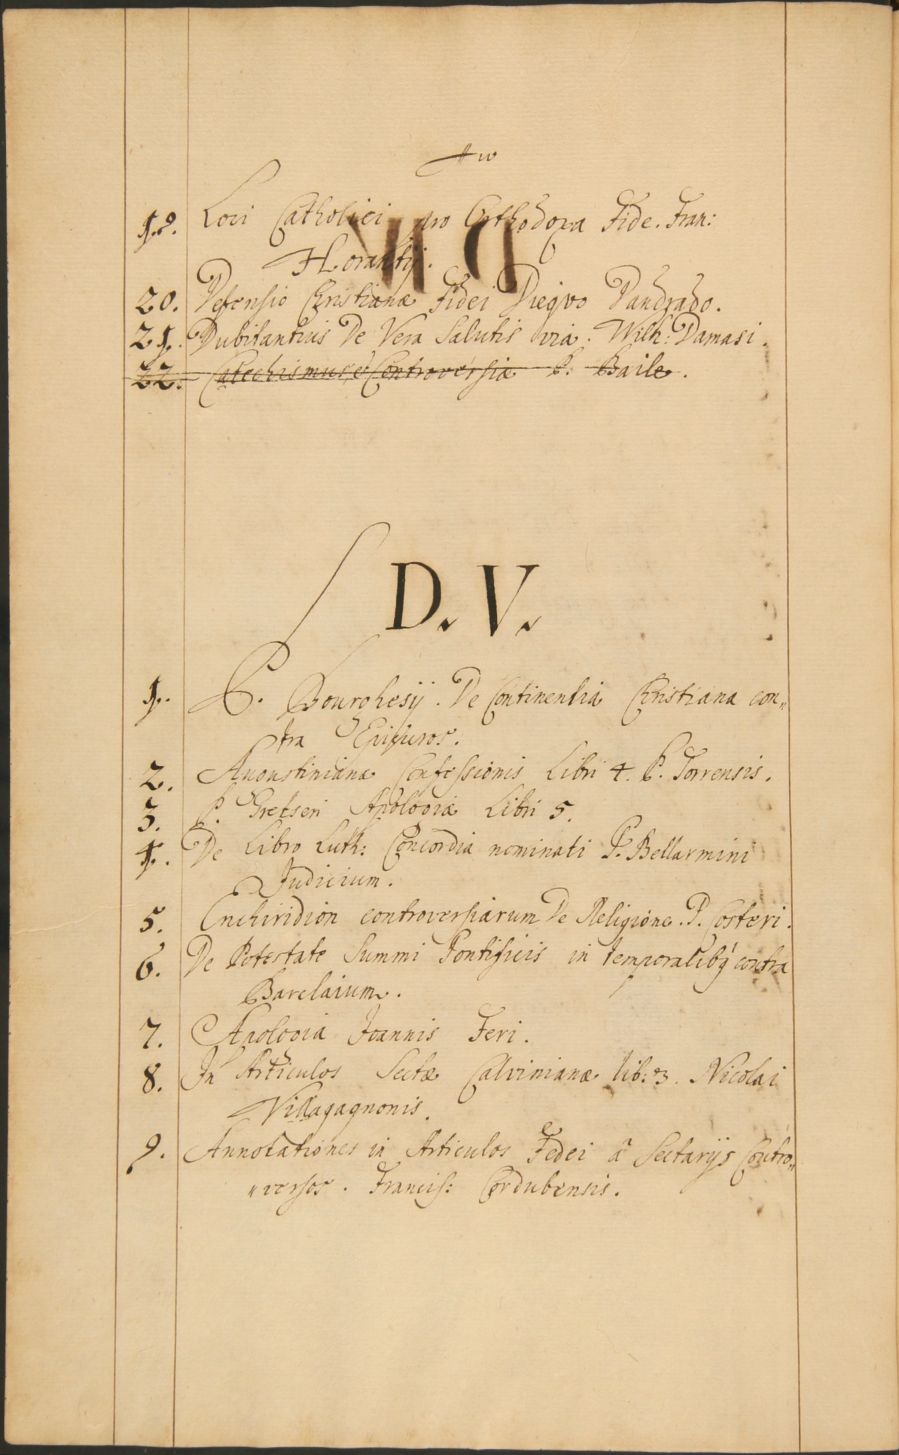 19. Loci Catholici pro Orthodoxa Fide. Fran:
Horantij.
20. Defensio Christianæ Fidei Diegvo Dandrado.
21. Dubitantius De Vera Salutis via. Wilh: Damasi.
22. Catechismus & Controversiæ P. Baile.
D. V.
1. P. Bourghesij. De Continentia Christiana con„
tra Epicuros.
2. Augustinianæ Confessionis Libri 4. P. Torrensis.
3. P. Gretseri Apologiæ Libri 5.
4. De Libro Luth: Concordia nominati P. Bellarmini
Judicium.
5. Enchiridion controversiarum De Religione. P. Costeri.
6. De Potestate Summi Pontificis in temporalibq́ contra
Barclaium.
7. Apologia Joannis Feri.
8. In Articulos Sectæ Calvinianæ lib: 3. Nicolai
Villagagnonis.
9. Annotationes in Articulos Fedei â Sectarijs Contro„
„versos. Francis: Cordubensis.